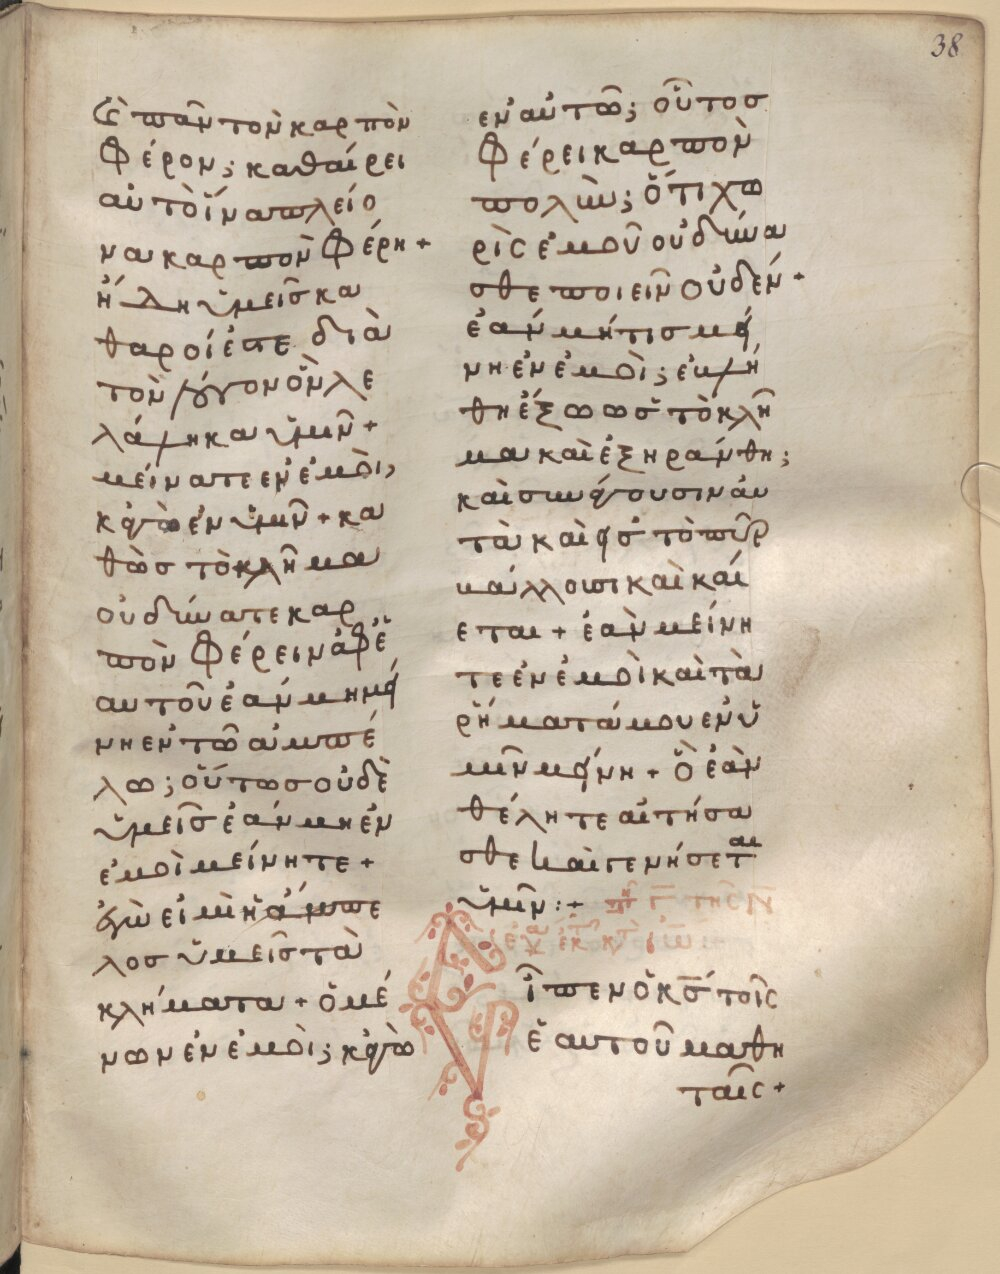 38
ϗ πᾶν τὸν καρπὸν
φέρον; καθαίρει
αὐτὸ ἵνα πλείο
να καρπὸν φέρη +
ἤδη ὑμεῖς κα
θαροί ἐστε διὰ
τὸν λόγον ὃν λε
λάληκα ὑμῖν +
μείνατε ἐν ἐμοὶ,
κἀγὼ ἐν ὑμῖν + κα
θὼς τὸ κλῆμα
οὐ δύναται καρ
πὸν φέρειν ἀφ ἑ
αυτοῦ ἐὰν μὴ μεί
νη ἐν τῶ ἀμπέ
λω; οὕτως οὐδὲ
ὑμεῖς ἐὰν μὴ ἐν
ἐμοὶ μείνητε +
ἐγὼ εἰμὶ ἡ ἄμπε
λος ὑμεῖς τὰ
κλήματα + ὁ μέ
νων ἐν ἐμοὶ; κἀγὼ
ἐν αὐτῶ; οὗτος
φέρει καρπὸν
πολὺν; ὅτι χω
ρὶς ἐμοῦ οὐ δύνα
σθε ποιεῖν οὐδέν +
ἐὰν μήτις μεί
νη ἐν ἐμοὶ; ἐβλή
θη ἔξω ὡς τὸ κλῆ
μα καὶ ἐξηράνθη;
καὶ συνάγουσιν αὐ
τὰ καὶ εἰς τὸ πῦρ
βάλλουσι καὶ καί
εται + ἐὰν μείνη
τε ἐν ἐμοὶ καὶ τὰ
ῥήματά μου ἐν ὑ
μῖν μείνη + ὃ ἐὰν
θέλητε αἰτήσα
σθε καὶ γενήσεται
ὑμῖν :+
εἶπεν ὁ κς τοῖς
ἑαυτοῦ μαθη
ταῖς +